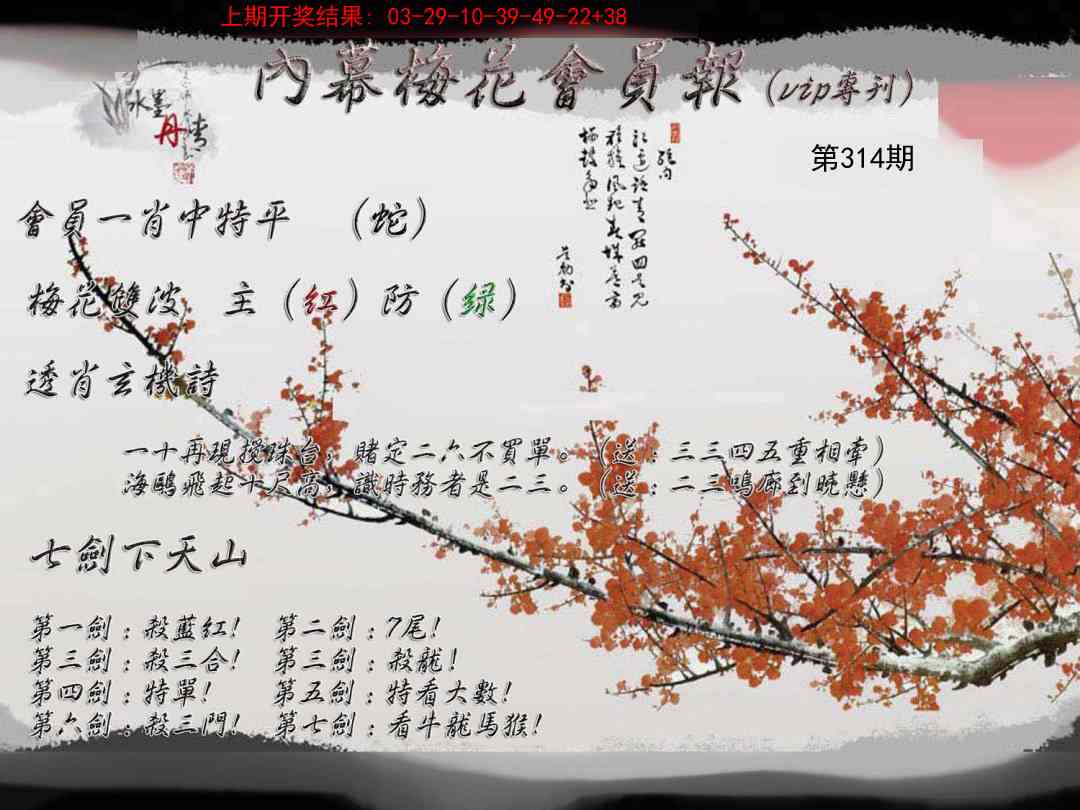 上期开奖结果: 03-29-10-39-49-22+38
內幕梅花會員報(vip專刊)
水墨
丹青
第314期
會員一肖中特平 (蛇)
梅花雙波 主(红)防(绿)
透肖玄機詩
一十再現攪珠台，賭定二六不買單。(送:三三四五重相牽)
海鷗飛起十尺高，識時務者是二三。(送:二三鳴廊到曉懸)
七劍下天山
第一劍:殺藍红! 第二劍:7尾!
第三劍:殺三合! 第三劍:殺龍!
第四劍:特單! 第五劍:特看大數!
第六劍:殺三門! 第七劍:看牛龍馬猴!